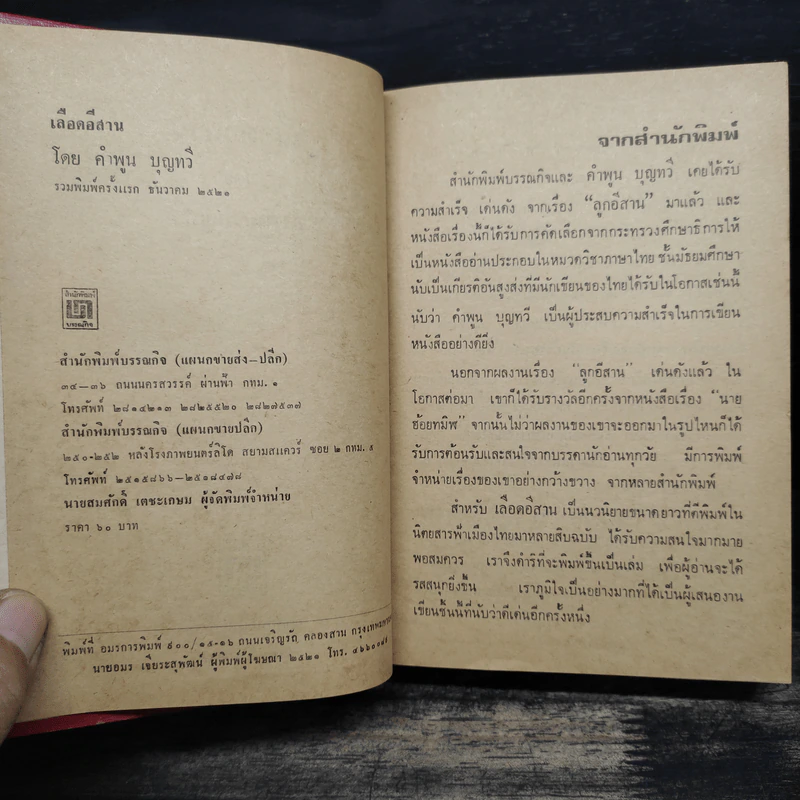 เลือดอีสาน
โดย คำพูน บุญทวี
รวมพิมพ์ครั้งแรก ธันวาคม ๒๕๒๑
สำนักพิมพ์
บรรณกิจ
สำนักพิมพ์บรรณกิจ (แผนกขายส่ง–ปลีก)
๓๔–๓๖ ถนนนครสวรรค์ ผ่านฟ้า กทม. ๑
โทรศัพท์ ๒๘๑๔๒๑๓ ๒๘๒๕๕๒๐ ๒๘๒๗๕๓๗
สำนักพิมพ์บรรณกิจ (แผนกขายปลีก)
๒๕๐–๒๕๒ หลังโรงภาพยนตร์ลิโด สยามสแควร์ ซอย ๒ กทม. ๕
โทรศัพท์ ๒๕๑๕๘๖๖–๒๕๑๘๔๗๘
นายสมศักดิ์ เตชะเกษม ผู้จัดพิมพ์จำหน่าย
ราคา ๖๐ บาท
พิมพ์ที่ อมรการพิมพ์ ๙๐๐/๑๕-๑๖ ถนนเจริญรัถ คลองสาน
นายอมร เจียระสุพัฒน์ ผู้พิมพ์ผู้โฆษณา ๒๕๒๑ โทร.
จากสำนักพิมพ์
สำนักพิมพ์บรรณกิจและ คำพูน บุญทวี เคยได้รับ
ความสำเร็จ เด่นดัง จากเรื่อง “ลูกอีสาน” มาแล้ว และ
หนังสือเรื่องนี้ก็ได้รับการคัดเลือกจากกระทรวงศึกษาธิการให้
เป็นหนังสืออ่านประกอบในหมวดวิชาภาษาไทย ชั้นมัธยมศึกษา
นับเป็นเกียรติอันสูงส่งที่มีนักเขียนของไทยได้รับในโอกาสเช่นนี้
นับว่า คำพูน บุญทวี เป็นผู้ประสบความสำเร็จในการเขียน
หนังสืออย่างดียิ่ง
นอกจากผลงานเรื่อง “ลูกอีสาน” เด่นดังแล้ว ใน
โอกาสต่อมา เขาก็ได้รับรางวัลอีกครั้งจากหนังสือเรื่อง “นาย
ฮ้อยทมิฬ” จากนั้นไม่ว่าผลงานของเขาจะออกมาในรูปไหนก็ได้
รับการต้อนรับและสนใจจากบรรดานักอ่านทุกวัย มีการพิมพ์
จำหน่ายเรื่องของเขาอย่างกว้างขวาง จากหลายสำนักพิมพ์
สำหรับ เลือดอีสาน เป็นนวนิยายขนาดยาวที่ตีพิมพ์ใน
นิตยสารฟ้าเมืองไทยมาหลายสิบฉบับ ได้รับความสนใจมากมาย
พอสมควร เราจึงดำริที่จะพิมพ์ขึ้นเป็นเล่ม เพื่อผู้อ่านจะได้
รสสนุกยิ่งขึ้น เราภูมิใจเป็นอย่างมากที่ได้เป็นผู้เสนองาน
เขียนชิ้นนี้ที่นับว่าดีเด่นอีกครั้งหนึ่ง